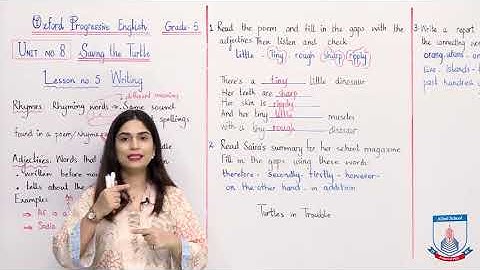 Oxford Progressive English Grade-5
Unit no 8 Saving the Turtle
Lesson no 5 Writing
different meaning
Rhymes: Rhyming words → Same sound
spellings
found in a poem/rhyme
Adjectives: Words that
written before
tells about the
Example:
1. Read the poem and fill in the gaps with the
adjectives. Then listen and check
little - Tiny - rough sharp ripply
There's a tiny little dinosaur
Her teeth are sharp
Her skin is ripply
And her tiny little muscles
With a tiny rough dinosaur
2. Read Saira's summary for her school magazine
Fill in the gaps using these words:
therefore - secondly - firstly - however -
on the other hand - in addition
Turtles in Trouble
3. Write a report
the connecting
past hundred
Allied School